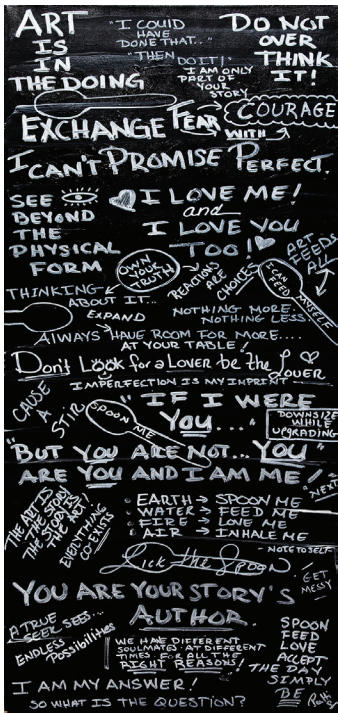 ART
IS
IN
THE DOING
"I COULD
HAVE
DONE THAT..."
"THEN DO IT!"
I AM ONLY
PART OF
YOUR
STORY
DO NOT
OVER
THINK
IT!
EXCHANGE FEAR WITH → COURAGE
I CAN'T PROMISE PERFECT.
SEE
BEYOND
THE
PHYSICAL
FORM
I LOVE ME!
and
I LOVE YOU
TOO!
ART
FEEDS
ALL
OWN
YOUR
TRUTH
REACTIONS
ARE
CHOICES
I CAN FEED MYSELF
THINKING
ABOUT IT...
EXPAND
NOTHING MORE.
NOTHING LESS.
ALWAYS HAVE ROOM FOR MORE....
AT YOUR TABLE!
Don't Look for a Lover be the Lover
IMPERFECTION IS MY IMPRINT
CAUSE
A
STIR
SPOON ME
"IF I WERE
YOU...."
DOWNSIZE
WHILE
UPGRADING
"BUT YOU ARE NOT... YOU"
ARE YOU AND I AM ME!
NEXT
THE ART IS
IN THE STORY
THE STORY IS
THE ART!
EVERYTHING
CO-EXISTS
• EARTH → SPOON ME
• WATER → FEED ME
• FIRE → LOVE ME
• AIR → INHALE ME
Lick the Spoon
- NOTE TO SELF -
GET
MESSY
YOU ARE YOUR STORY'S
AUTHOR.
A TRUE
SEEKER SEES...
ENDLESS
Possibilities
WE HAVE DIFFERENT
SOULMATES AT DIFFERENT
TIMES FOR ALL THE
RIGHT REASONS!
SPOON
FEED
LOVE
ACCEPT
THE DAY
SIMPLY
BE
I AM MY ANSWER!
SO WHAT IS THE QUESTION?